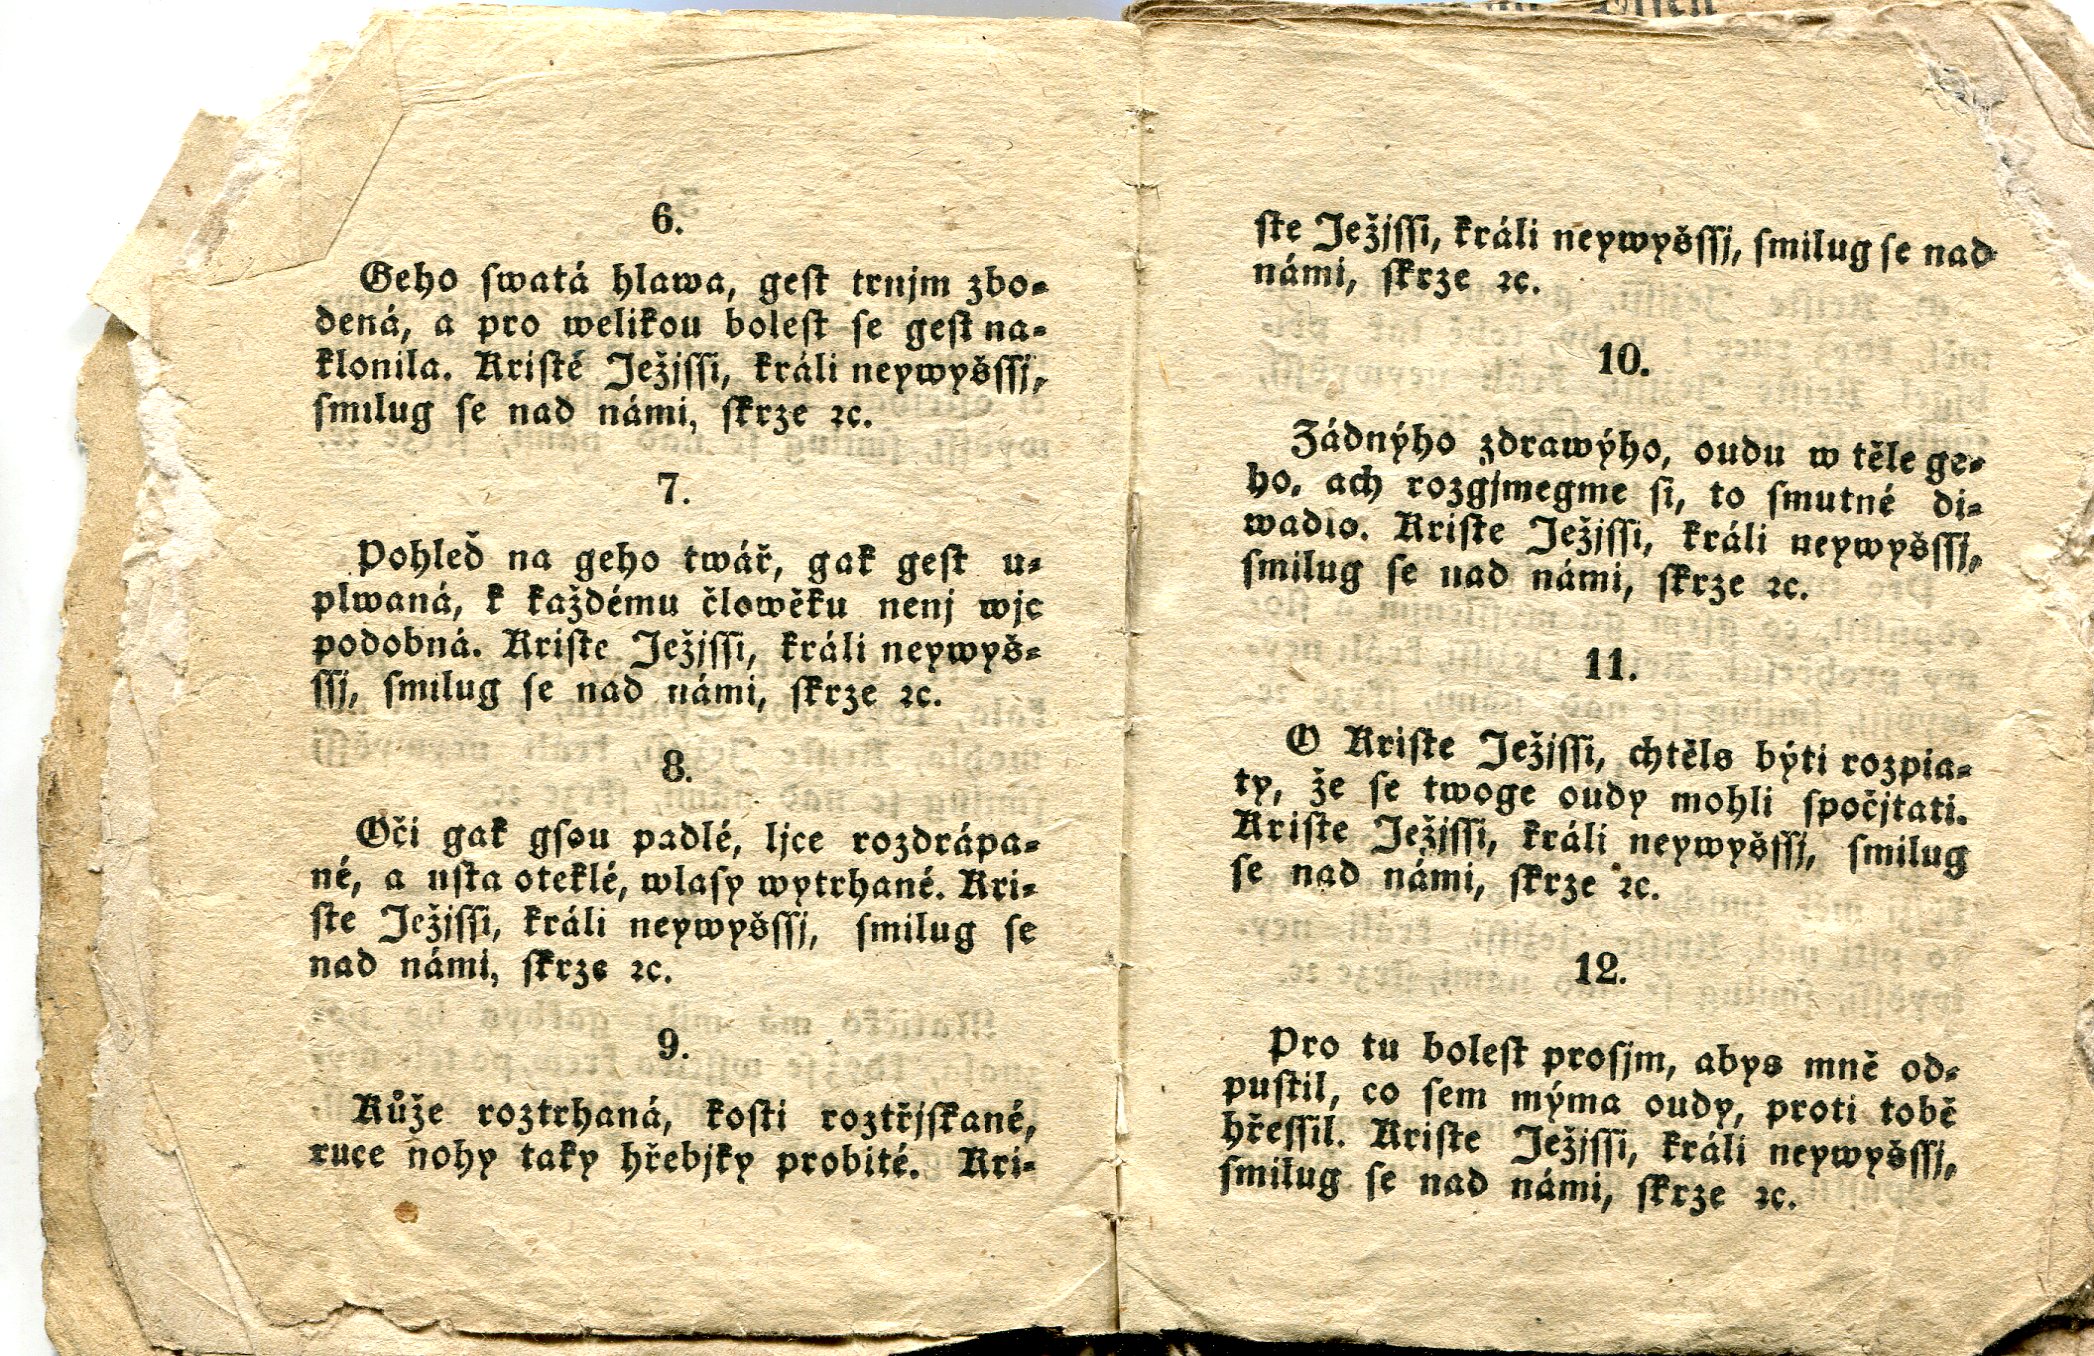 6.
Geho ſwatá hlawa, geſt trnjm zbo⸗
dená, a pro welikou boleſt ſe geſt na⸗
klonila. Kriſté Ježjſſi, králi neywyšſſj,
ſmilug ſe nad námi, ſkrze ꝛc.
7.
Pohleď na geho twář, gak geſt u⸗
plwaná, k každému člowěku nenj wjc
podobná. Kriſte Ježjſſi, králi neywyš⸗
ſſj, ſmilug ſe nad námi, ſkrze ꝛc.
8.
Oči gak gſou padlé, ljce rozdrápa⸗
né, a uſta oteklé, wlaſy wytrhané. Kri⸗
ſte Ježjſſi, králi neywyšſſj, ſmilug ſe
nad námi, ſkrze ꝛc.
9.
Kůže roztrhaná, koſti roztřjſkané,
ruce nohy taky hřebjky probité. Kri⸗
ſte Ježjſſi, králi neywyšſſj, ſmilug ſe nad
námi, ſkrze ꝛc.
10.
Žádnýho zdrawýho, oudu w těle ge⸗
ho, ach rozgjmegme ſi, to ſmutné di⸗
wadlo. Kriſte Ježjſſi, králi neywyšſſj,
ſmilug ſe nad námi, ſkrze ꝛc.
11.
O Kriſte Ježjſſi, chtěls býti rozpia⸗
ty, že ſe twoge oudy mohli ſpočjtati.
Kriſte Ježjſſi, králi neywyšſſj, ſmilug
ſe nad námi, ſkrze ꝛc.
12.
Pro tu boleſt proſjm, abys mně od⸗
puſtil, co ſem mýma oudy, proti tobě
hřeſſil. Kriſte Ježjſſi, králi neywyšſſj,
ſmilug ſe nad námi, ſkrze ꝛc.